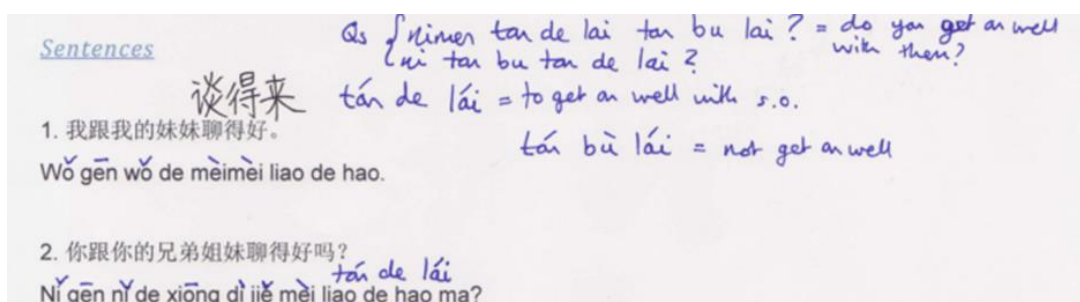 Sentences
Qs { nimen tan de lai tan bu lai ? = do you get on well with them?
ni tan bu tan de lai ?
谈得来 tán de lái = to get on well with s.o.
1. 我跟我的妹妹聊得好。
tán bù lái = not get on well
Wǒ gēn wǒ de mèimèi liao de hao.
2. 你跟你的兄弟姐妹聊得好吗?
tán de lái
Nǐ gēn nǐ de xiōng dì jiě mèi liao de hao ma?